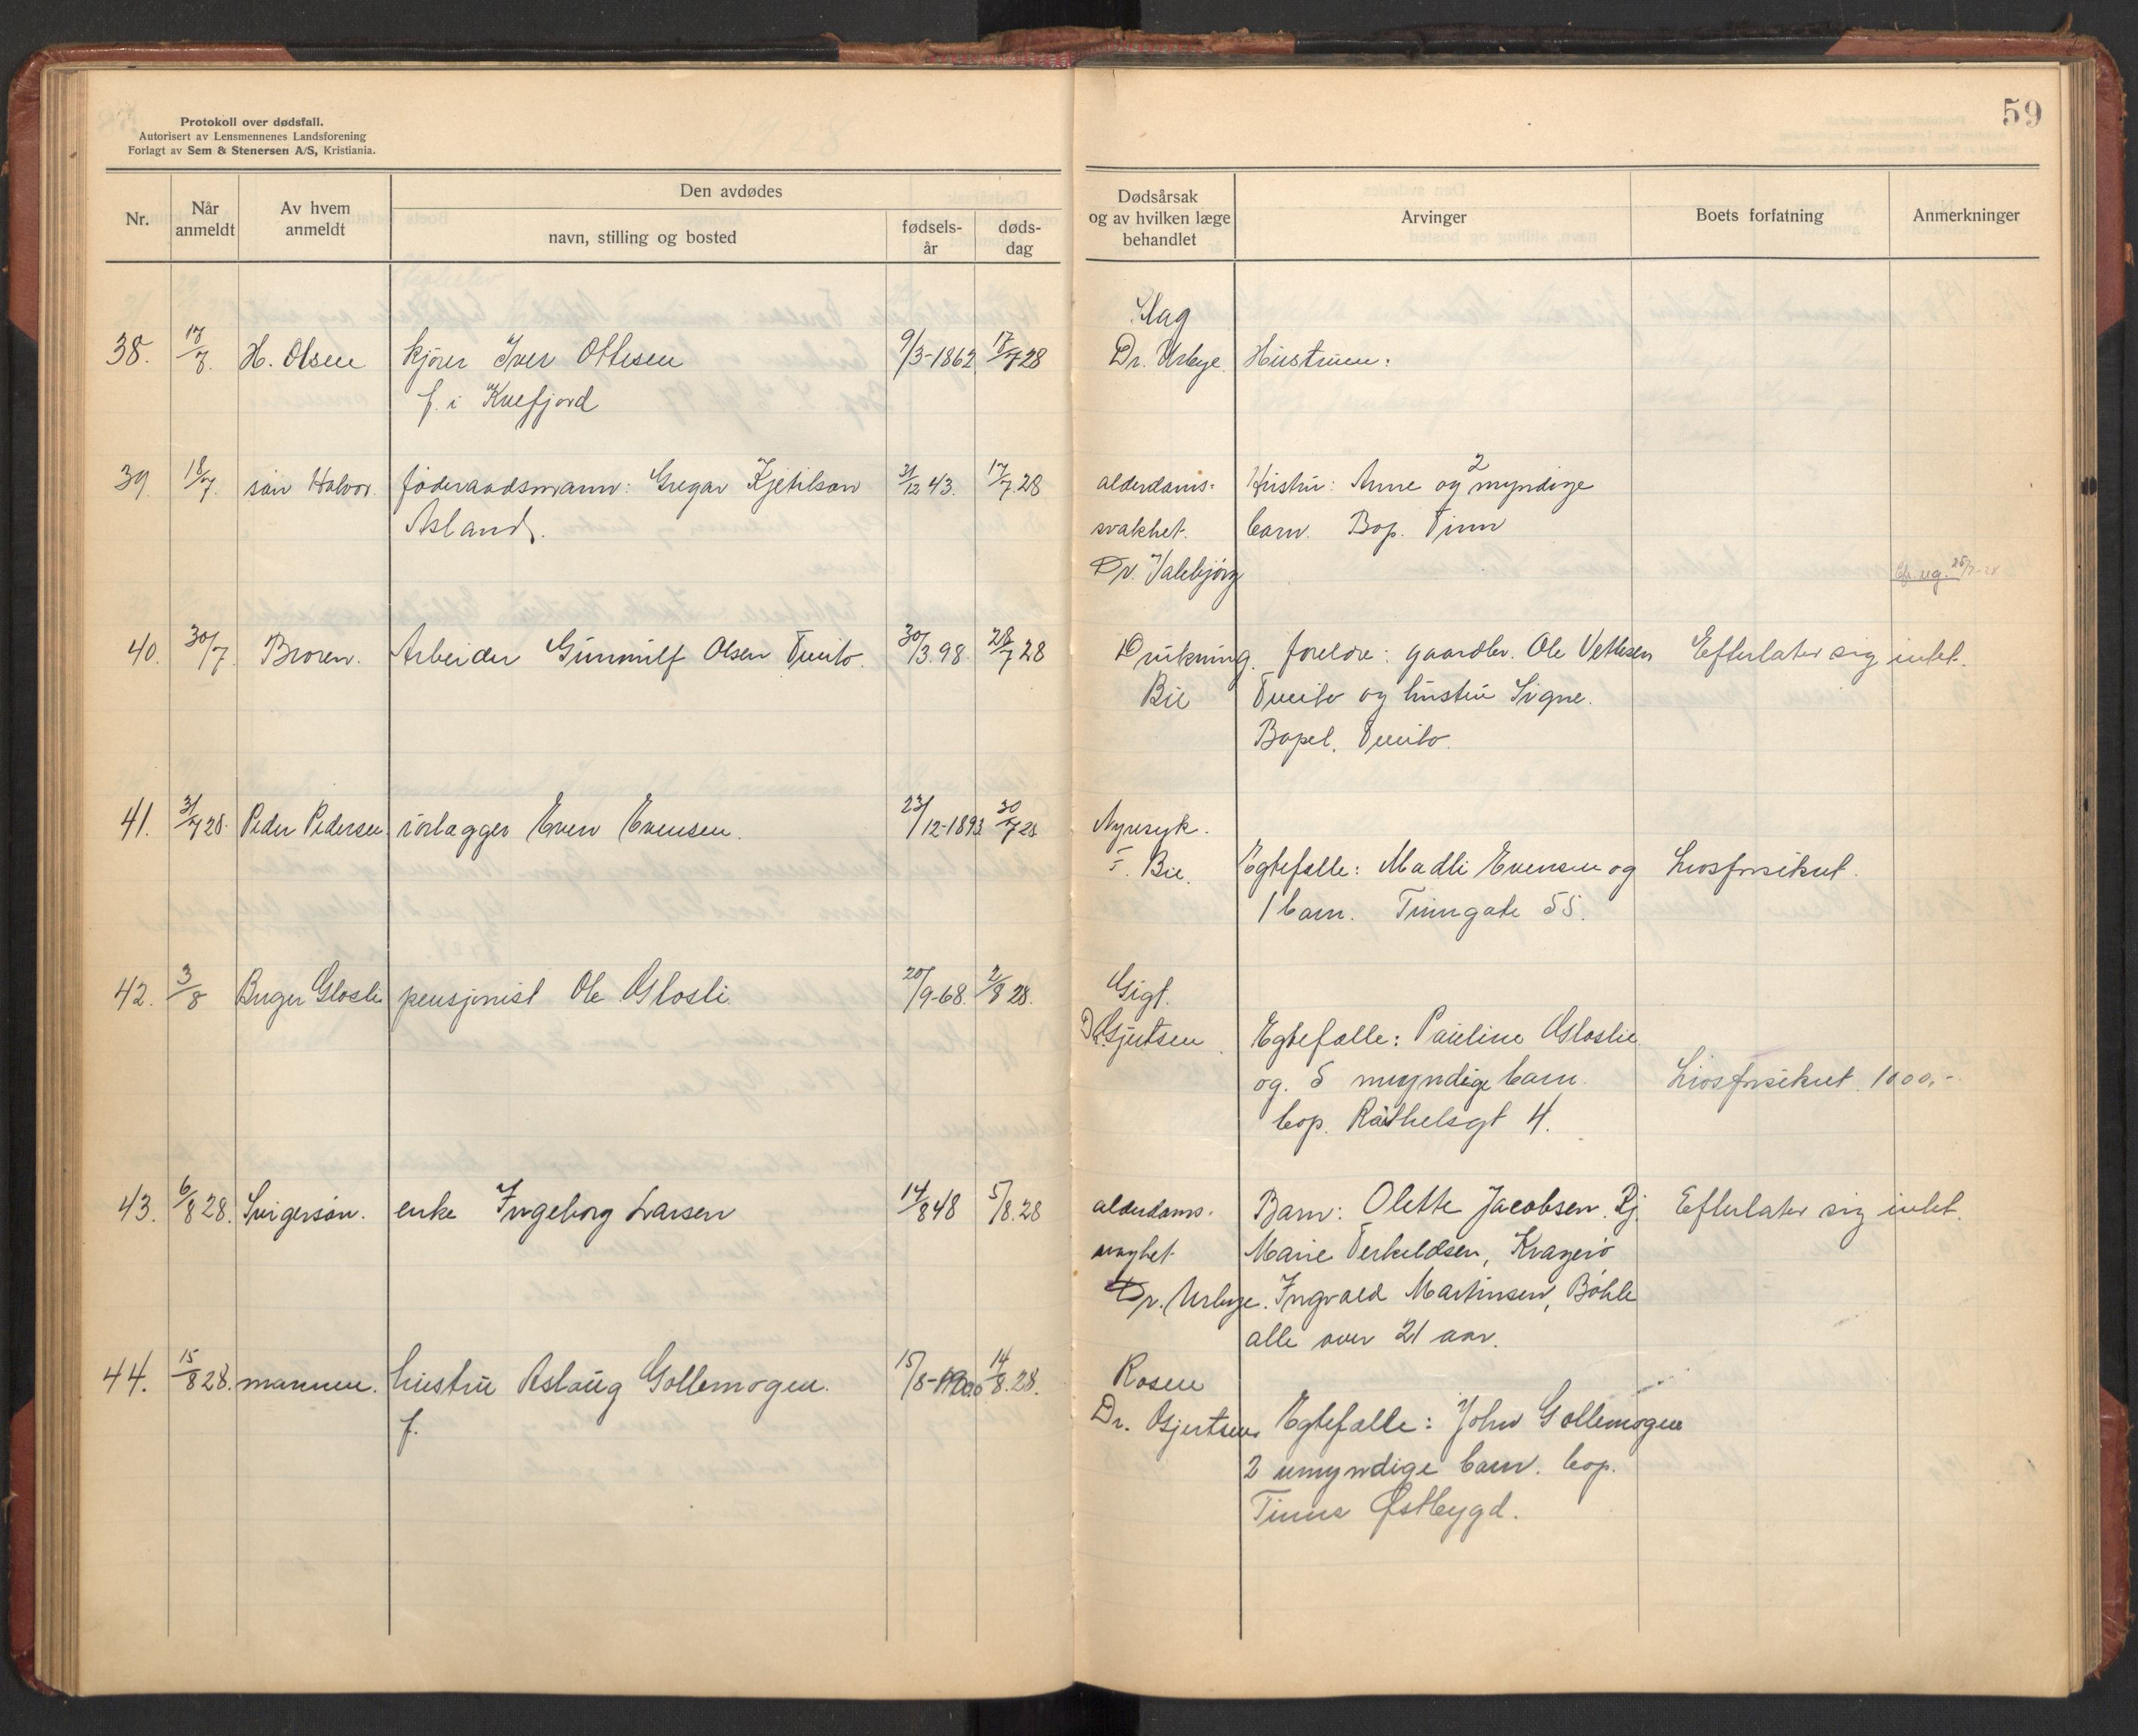 Protokoll over dødsfall.
Autorisert av Lensmennenes Landsforening
Forlagt av Sem & Stenersen A/S, Kristiania.
59
Nr.
Når anmeldt
Av hvem anmeldt
Den avdødes
navn, stilling og bosted
fødsels-år
døds-dag
Dødsårsak og av hvilken læge behandlet
Arvinger
Boets forfatning
Anmerkninger
Slag
38. 17/7. H. Olsen kjører Iver Ottesen 9/3-1862 17/7 28 Dr. Urbye. Hustruen:
f. i Kvefjord
39. 18/7. søn Halvor. føderaadsmann: Gregar Kjetilson 31/12 43. 17/7.28 alderdoms- Hustru: Anne og 2 myndige
Asland. svakhet. barn. Bop. Tinn
Dr. Valebjørg
40. 30/7. Broren. Arbeider Gunnulf Olsen Tveito. 30/3.98. 28/7 28 Drukning. foreldre: gaardbr. Ole Vetlesen Efterlater sig intet.
Bie Tveito og hustru Signe.
Bopel. Tveito.
41. 31/7 28. Peder Pedersen rørlægger Even Evensen. 23/12-1893 30/7 28 Nyresyk.
Bie. Egtefælle: Madli Evensen og Livsforsikret.
1 barn. Tinngate 55.
42. 3/8 Birger Glosli pensjonist Ole Glosli. 20/9-68. 2/8 28. Gigt.
Dr. Gjertsen Egtefælle: Pauline Gloslie
og 5 myndige barn. Livsforsikret. 1000,-
bop. Råthelsgt 4.
43. 6/8 28. Svigersøn. enke Ingeborg Larsen 14/8 48 5/8.28 alderdoms- Barn: Olette Jacobsen. Rj. Efterlater sig intet.
Marie Terkeldsen, Kragerø
Dr. Urbye. Ingvald Martinsen, Bøhle
alle over 21 aar.
44. 15/8 28. mannen. hustru Aslaug Gollemogen. 15/8-1900 14/8.28. Rosen
f. Dr. Gjertsen Egtefælle: John Gollemogen
2 umyndige barn. bop.
Tinns Østbygd.